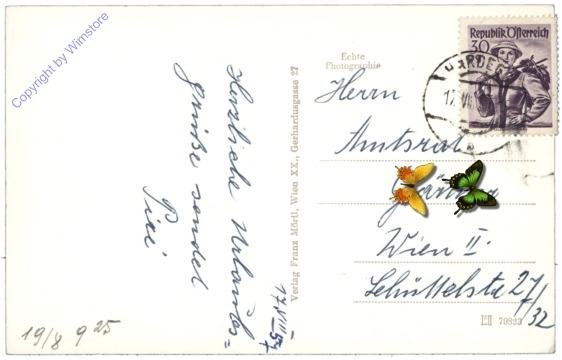 Copyright by Wimstore
Herzliche Urlaubs=
grüße sendet
17.VIII.57
19/8 925
Verlag Franz Mörtl, Wien XX., Gerhardusgasse 27
Echte
Photographie
Republik Österreich
30
Herrn
Amtsrat
Wien II
Schüttelstr 27/
/32
79823